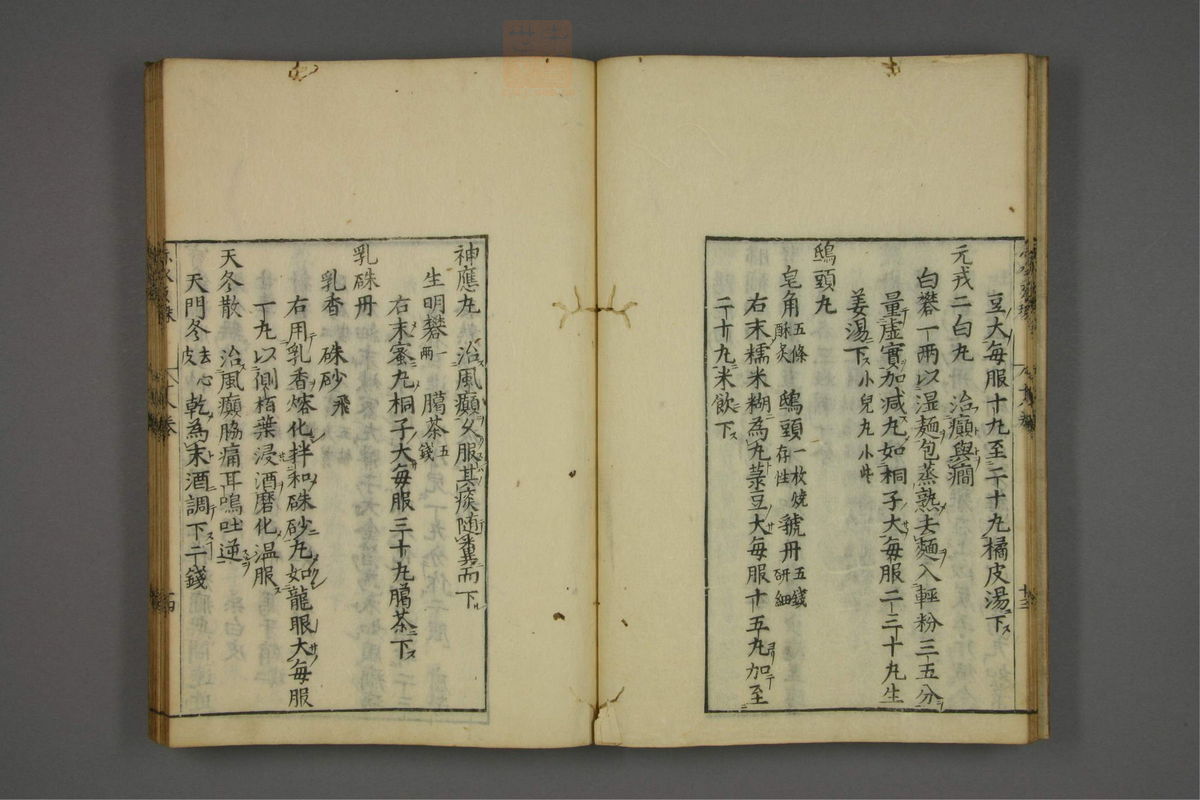 豆大每服十丸至二十丸橘皮湯下
元戎二白丸　治癲與癇
白礬一両以湿麺包蒸熟去麺入輕粉三五分
量虚實加減丸如桐子大每服二三十丸生
姜湯下小児丸小些
鴟頭丸
皂角五條酥炙　鴟頭一枚燒存性　虢丹五錢研細
右末糯米糊為丸菉豆大每服十五丸加至
二十丸米飲下
神應丸　治風癲久服其痰随糞而下
生明礬一両　臈茶五錢
右末蜜丸桐子大每服三十丸臈茶下
乳硃丹
乳香　硃砂飛
右用乳香熔化拌和硃砂丸如龍眼大每服
一丸以側栢葉浸酒磨化温服
天冬散　治風癲脇痛耳鳴吐逆
天門冬去心皮　乾為末酒調下二錢